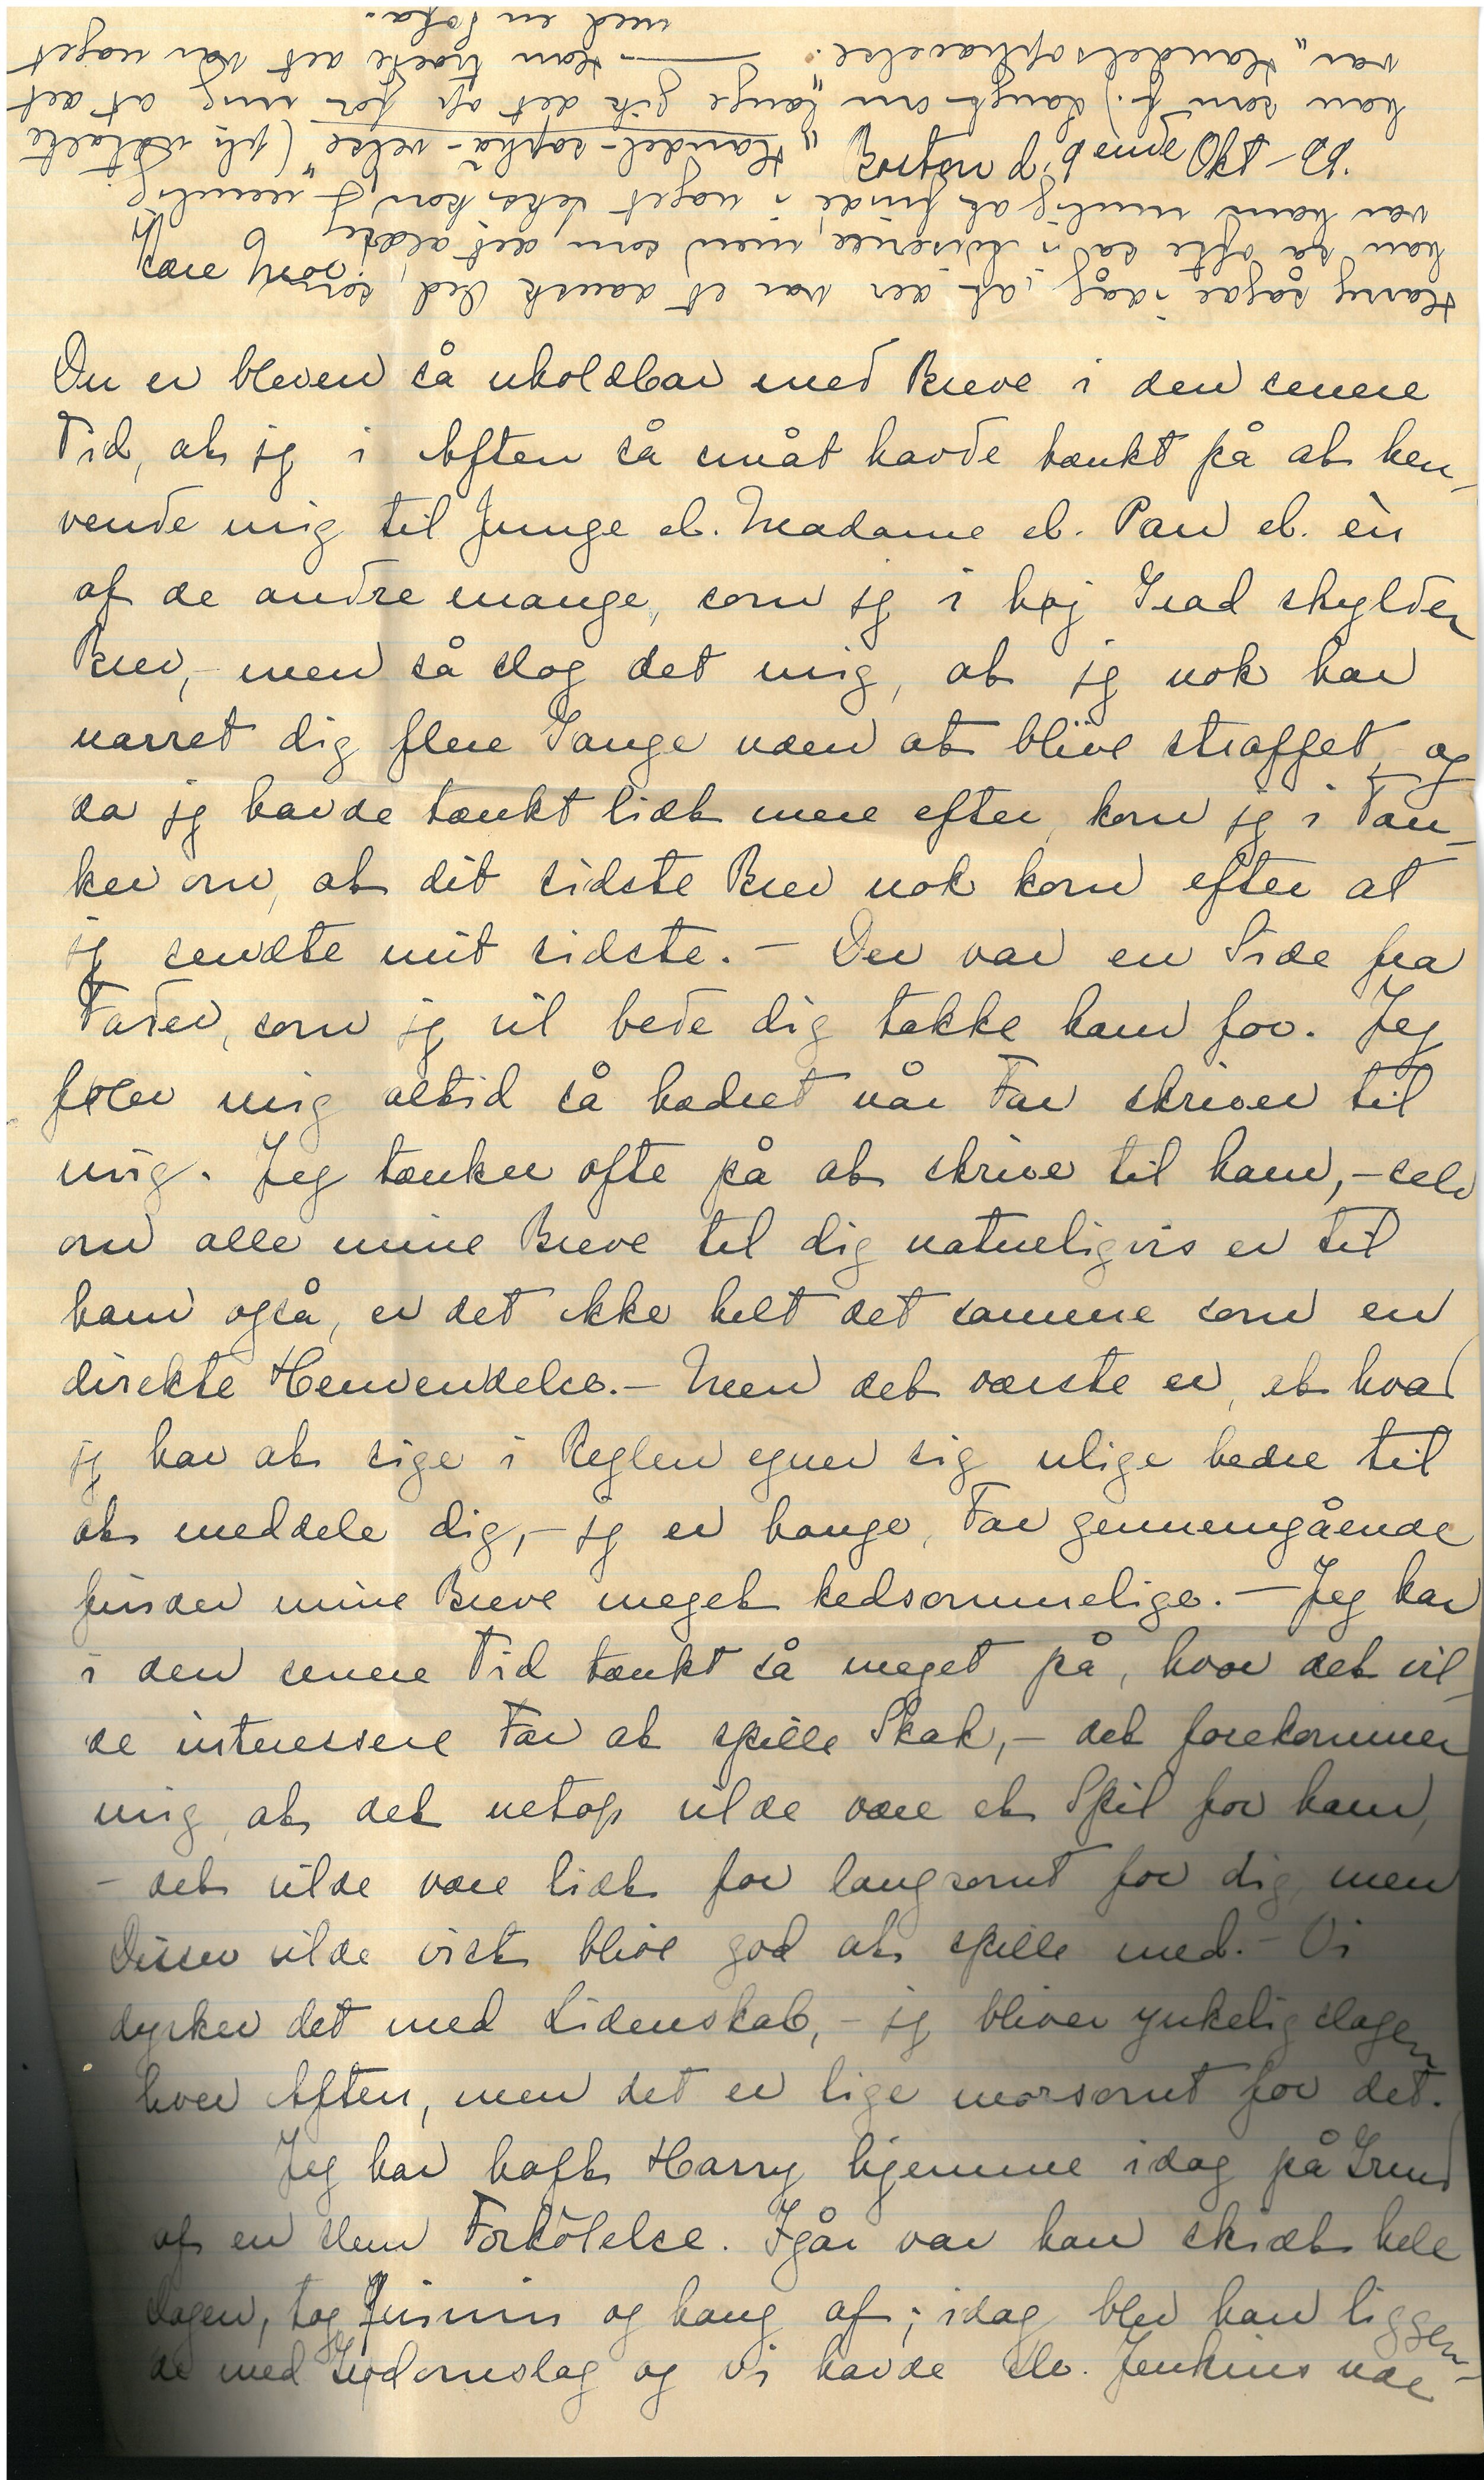 Boston d. 9 nov. 
Kære Mor
Du er bleven så uholdbar med Breve i den senere
Tid, at jeg i Aften så småt havde tænkt på at hen-
vende mig til Junge el. Madame el. Pan el. èn
af de andre mange, som jeg i høj Grad skylder
Brev, - men så slog det mig, at jeg nok har
narret dig flere Gange uden at blive straffet, og
da jeg havde tænkt lidt mere efter, kom jeg i Tan-
ker om, at dit sidste Brev nok kom efter at
jeg sendte mit sidste. - Der var en Side fra
Fader, som jeg vil bede dig takke ham for. Jeg
føler mig altid så hædret når Far skriver til
mig. Jeg tænker ofte på at skrive til ham, - selv
om alle mine Breve til dig naturligvis er til
ham også, er det ikke helt det samme som en
direkte Henvendelse. - Men det værste er, at hvad
jeg har at sige i Reglen egner sig ulige bedre til
at meddele dig, - jeg er bange, Far gennemgående
finder mine Breve meget kedsommelige. - Jeg har
i den senere Tid tænkt så meget på, hvor det vil-
de interessere Far at spille Skak, - det forekommer
mig, at det netop vilde være et Spil for ham,
- det vilde være lidt for langsomt for dig, men
Disser vilde vist blive god at spille med. - Vi
dyrker det med Lidenskab, - jeg bliver ynkelig slagen
hver Aften, men det er lige morsomt for det.
Jeg har haft Harry hjemme idag på Grund
af en slem Forkölelse. Igår var han skidt hele
Dagen, tog Kinin og hang af; idag blev han liggen-
de med og vi havde Dr. Jenkins ude
Harry sagde idag, at der var et dansk Ord, som
han så ofte så i Aviserne, men som det aldrig
var ham mulig at finde i noget Leksikon, nemlig
"Handel-sophä-velse" (ph udtalte
han som f.) Længe om længe gik det op for mig at det
var "Handelsophævelse". — Han troede det var noget
med en Sofa.